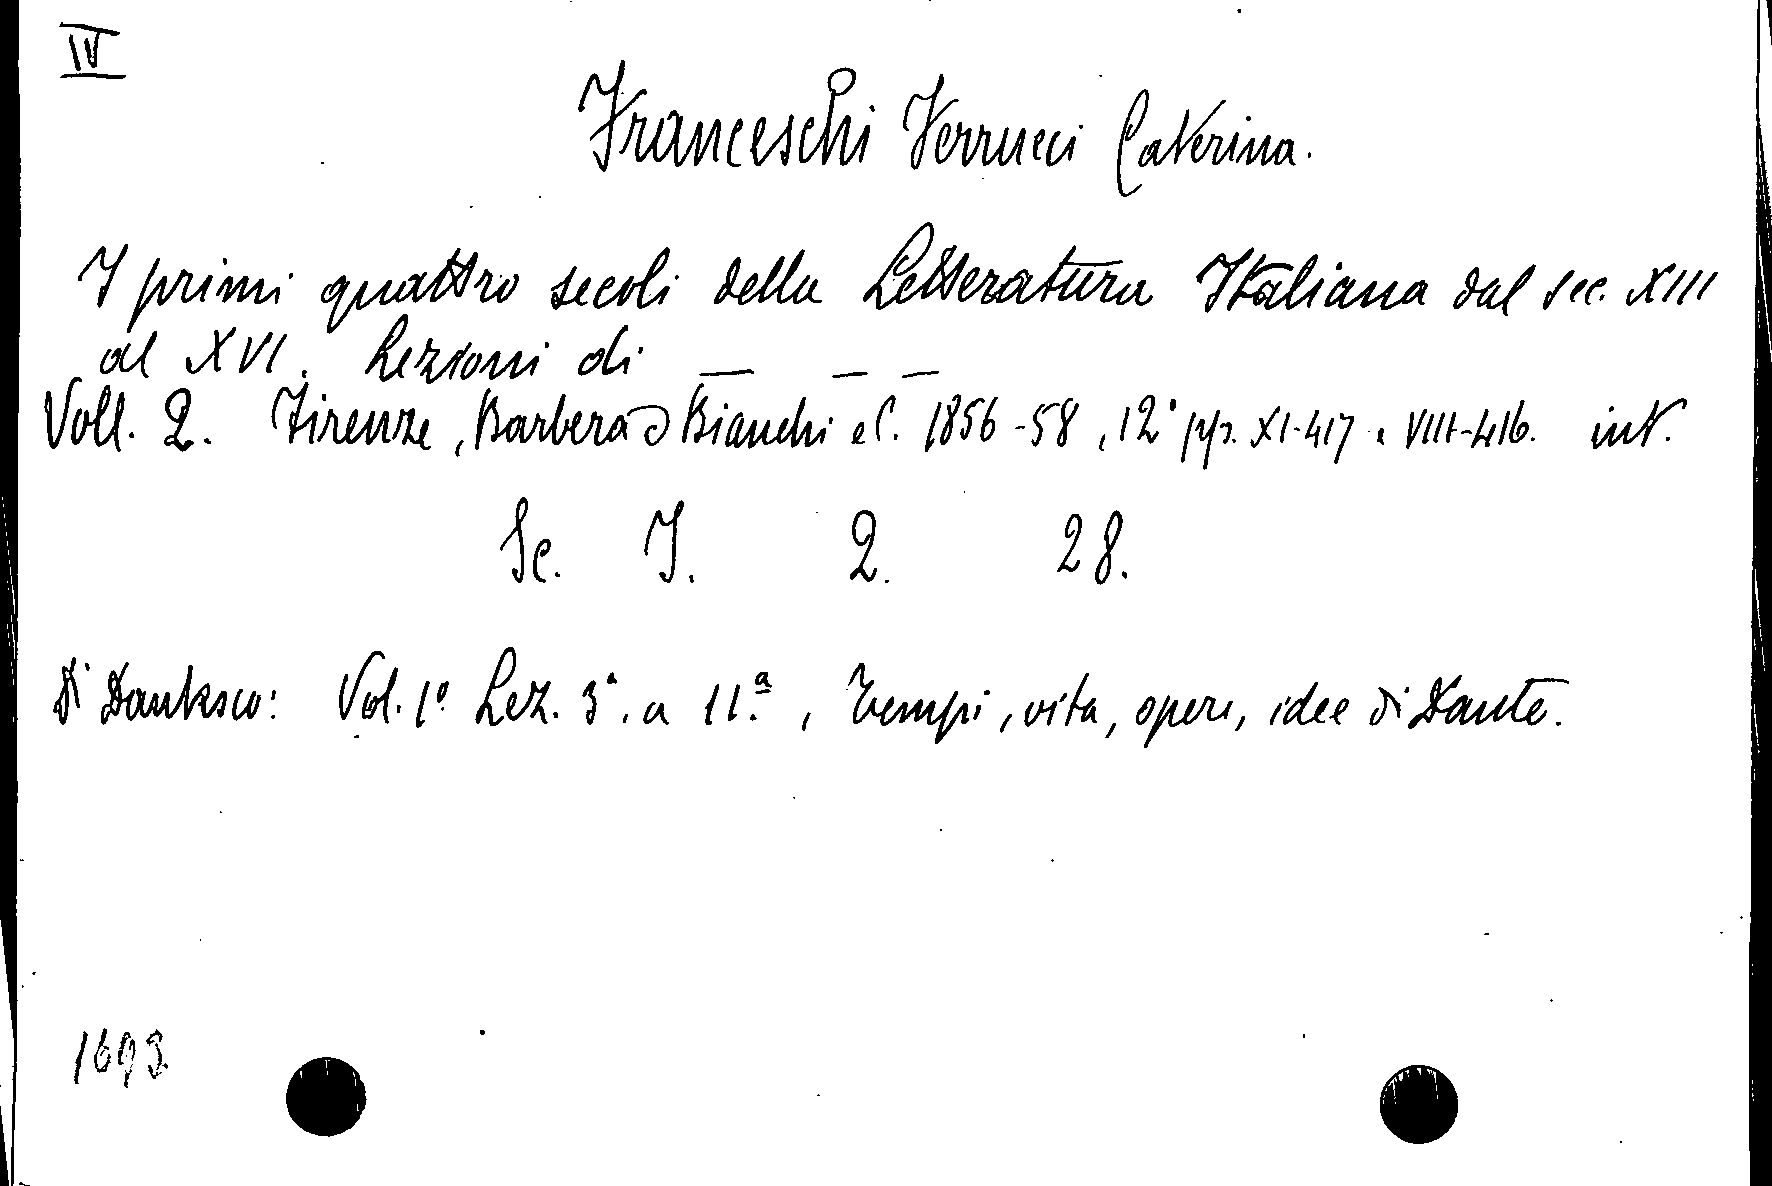 IV
Franceschi Ferrucci Caterina.
I primi quattro secoli della Letteratura Italiana dal sec. XIII
al XVI. Lezioni di — — —
Voll. 2. Firenze, Barbera Bianchi e C. 1856-58, 12° pp. XI-417 e VIII-416. int.
Sc. I. 2. 28.
Di Dantesco: Vol. 1° Lez. 3ª. a 11.ª, Tempi, vita, opere, idee di Dante.
1693